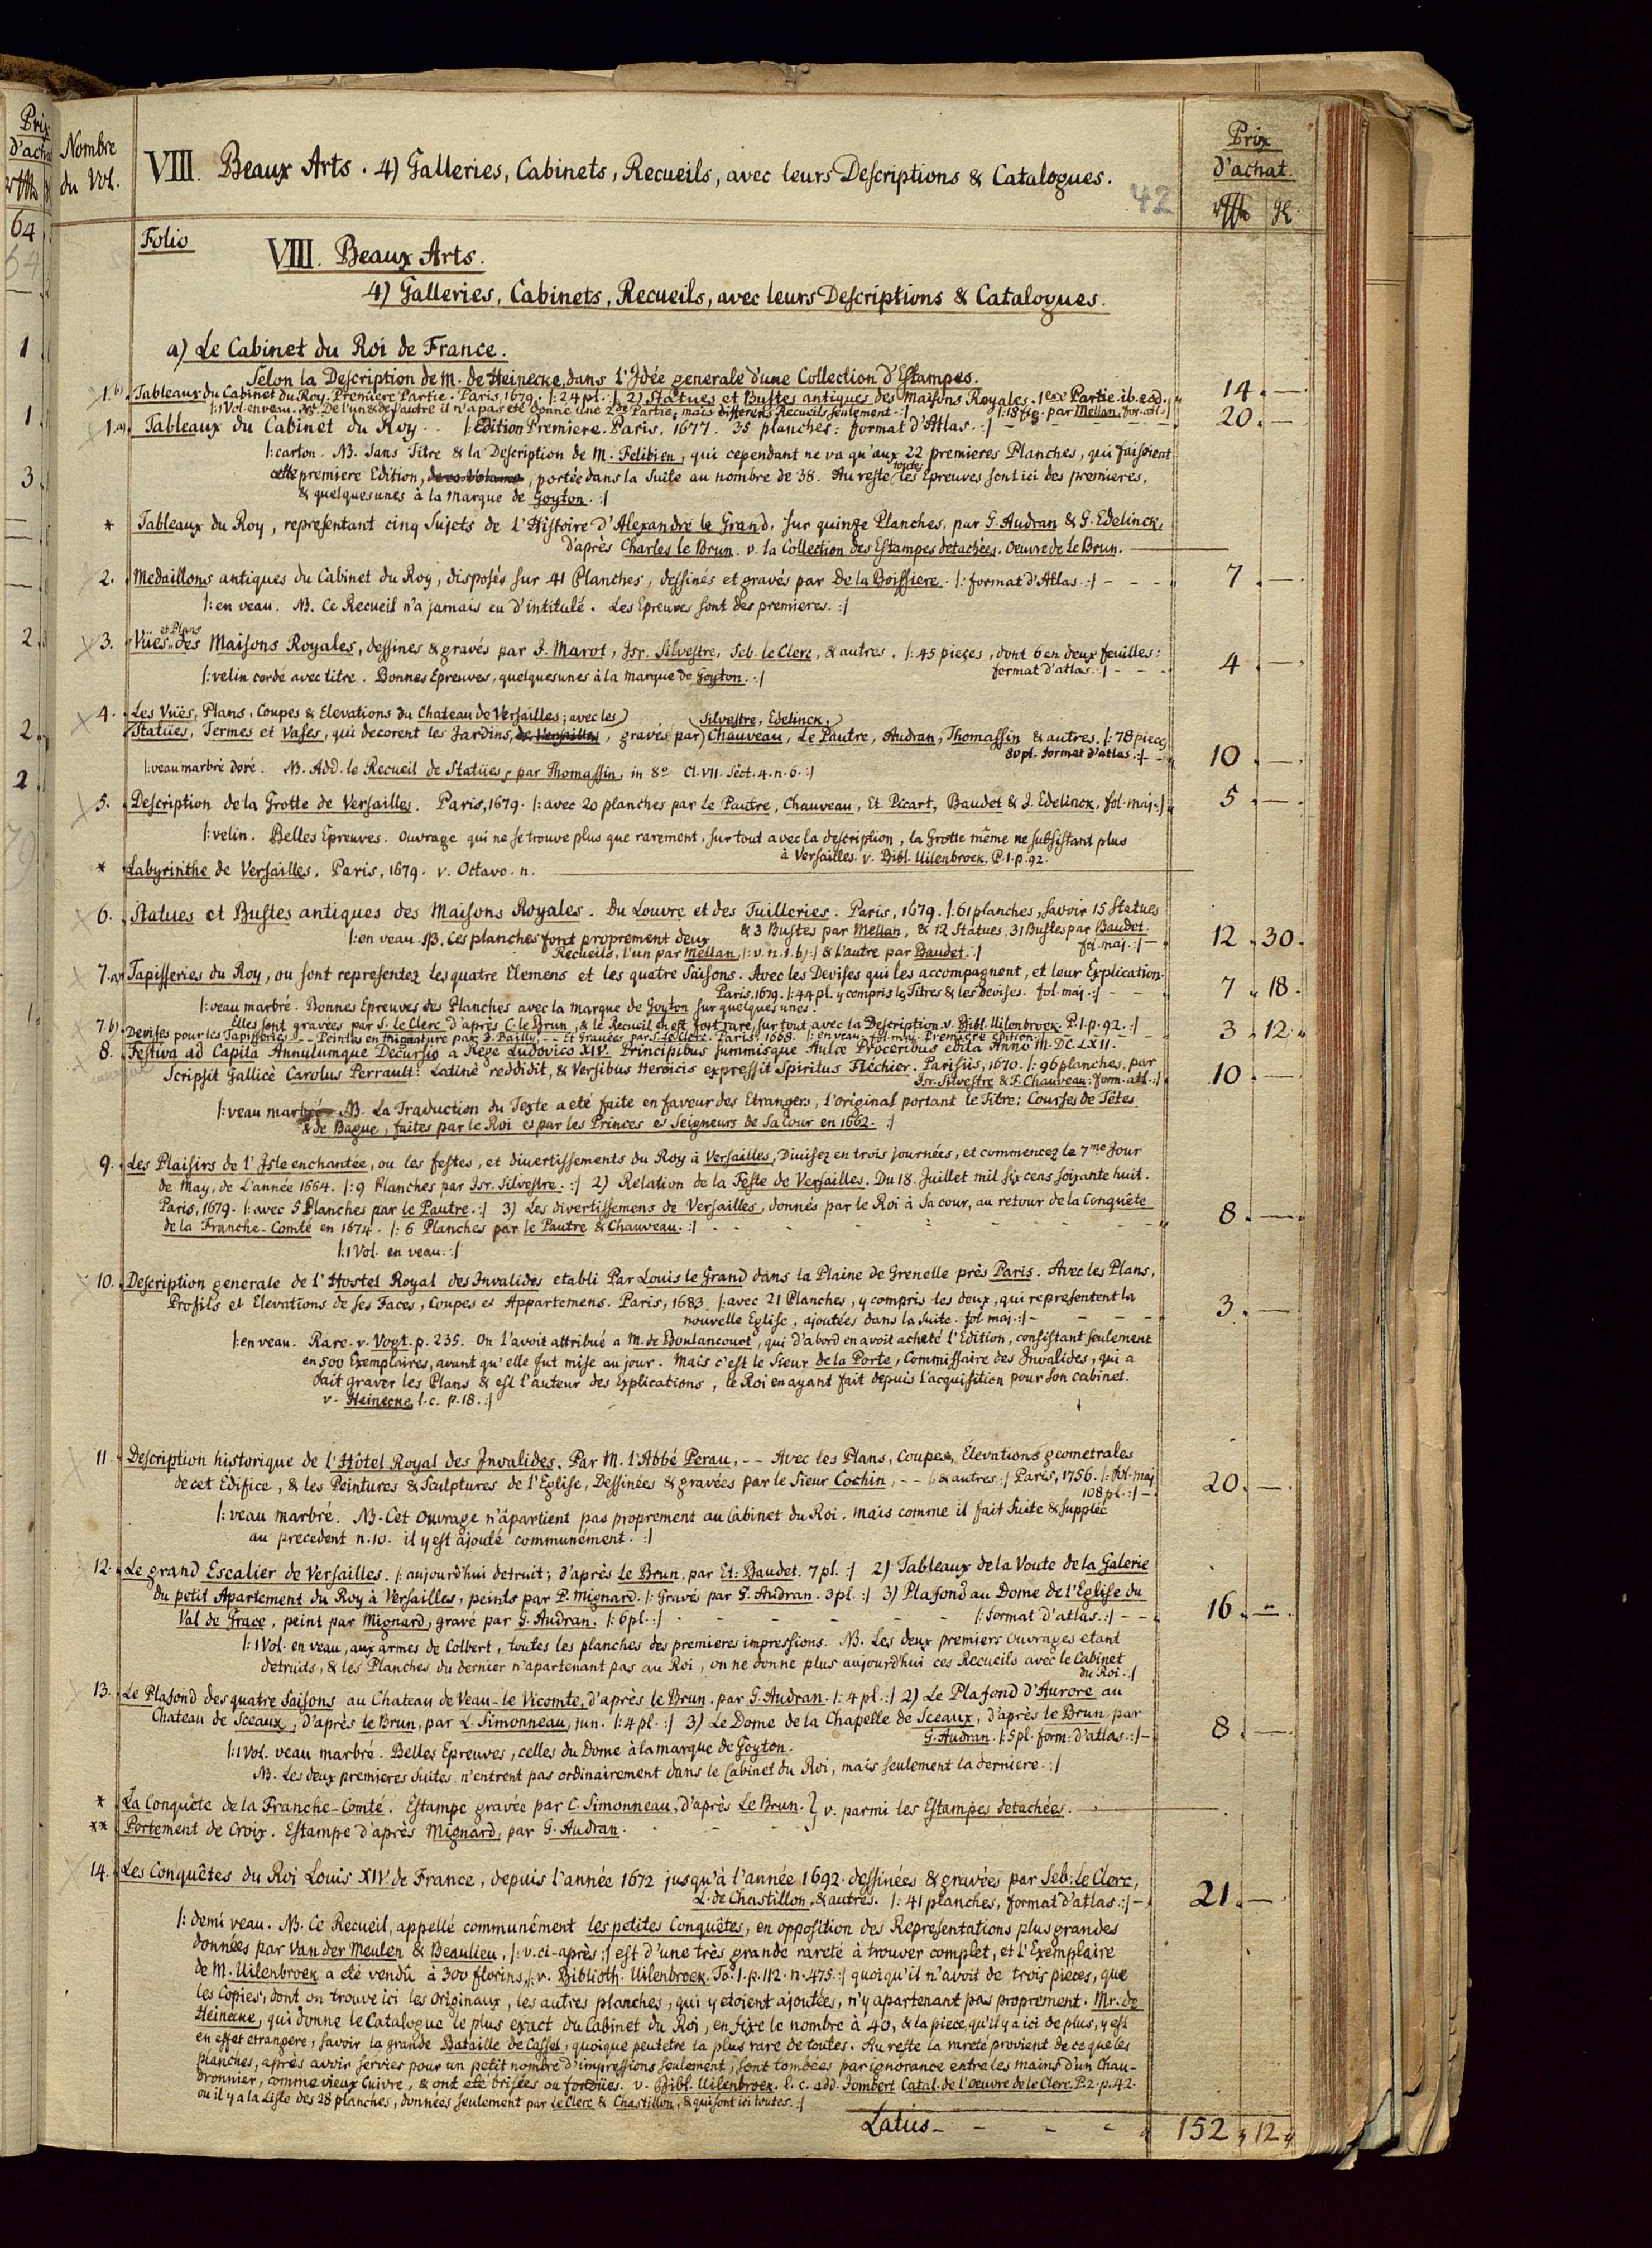 Prix
d'achat
Nombre
du Vol.
VIII. Beaux Arts. 4) Galleries, Cabinets, Recueils, avec leurs Descriptions & Catalogues.
42
Prix
d'achat.
Folio
VIII. Beaux Arts.
4) Galleries, Cabinets, Recueils, avec leurs Descriptions & Catalogues.
a) Le Cabinet du Roi de France.
Selon la Description de M. de Heinecke, dans l'Idée generale d'une Collection d'Estampes.
1.b) Tableaux du Cabinet du Roy. Premiere Partie. Paris, 1679. /: 24 pl. :/ 2) Statues et Bustes antiques des Maisons Royales. 1ere Partie. ib. eod. 14. —
/: 1 Vol. en veau. NB. De l'un & de l'autre il n'a pas eté donné une 2de Partie, mais differens Recueils seulement :/ /: 18 fig. par Mellan, fol. atl. :/
1.a) Tableaux du Cabinet du Roy. . /: Edition Premiere. Paris, 1677. 35 planches: format d'Atlas. :/ 20. —
/: carton. NB. Sans Titre & la Description de M. Felibien, qui cependant ne va qu'aux 22 premieres Planches, qui faisoient
cette premiere Edition, de ce Volume, portée dans la Suite au nombre de 38. Au reste toutes les Epreuves sont ici des premieres,
& quelquesunes à la marque de Goyton. :/
* Tableaux du Roy, representant cinq Sujets de l'Histoire d'Alexandre le Grand, sur quinze Planches, par G. Audran & G. Edelinck,
d'après Charles le Brun. v. la Collection des Estampes detachées. Oeuvre de Le Brun.
2. Medaillons antiques du Cabinet du Roy, disposés sur 41 Planches, dessinés et gravés par De la Boissiere. /: format d'Atlas. :/ - - - 7. —
/: en veau. NB. Ce Recueil n'a jamais eu d'intitulé. Les Epreuves sont des premieres. :/
3. Vües et Plans des Maisons Royales, dessines & gravés par J. Marot, Isr. Silvestre, Seb. le Clerc, & autres. /: 45 pieces, dont 6 en deux feuilles:
format d'atlas. :/ - - - 4. —
/: velin cordé avec titre. Bonnes Epreuves, quelquesunes à la marque de Goyton. :/
4. Les Vües, Plans, Coupes & Elevations du Chateau de Versailles; avec les
Statües, Termes et Vases, qui decorent les Jardins, de Versailles, gravés par Silvestre, Edelinck, Chauveau, Le Pautre, Audran, Thomassin & autres. /: 78 pieces
80 pl. format d'atlas. :/ - 10. —
/: veau marbré doré. NB. Add. le Recueil de Statües, par Thomassin, in 8o Cl. VII. Sect. 4. n. 6. :/
5. Description de la Grotte de Versailles. Paris, 1679. /: avec 20 planches par Le Pautre, Chauveau, Et. Picart, Baudet & J. Edelinck, fol. maj. :/ 5. —
/: velin. Belles Epreuves. Ouvrage qui ne se trouve plus que rarement, sur tout avec la description, la Grotte même ne subsistant plus
à Versailles. v. Bibl. Uilenbroek. P. I. p. 92.
* Labyrinthe de Versailles. Paris, 1679. v. Octavo. n.
6. Statues et Bustes antiques des Maisons Royales. Du Louvre et des Tuilleries. Paris, 1679. /: 61 planches, savoir 15 Statues
& 3 Bustes par Mellan, & 12 Statues, 31 Bustes par Baudet. fol. maj. :/ - 12. 30.
/: en veau. NB. Ces planches font proprement deux
Recueils, l'un par Mellan, /: v. n. 1. b) :/ & l'autre par Baudet. :/
7.a) Tapisseries du Roy, ou sont representez les quatre Elemens et les quatre Saisons. Avec les Devises qui les accompagnent, et leur Explication.
Paris, 1679. /: 44 pl. y compris les Titres & les devises. fol. maj. :/ - - 7. 18.
/: veau marbré. Bonnes Epreuves des Planches avec la marque de Goyton sur quelques unes.
Elles sont gravées par S. le Clerc d'après C. le Brun, & le Recueil en est fort rare, sur tout avec la Description. v. Bibl. Uilenbroek. P. I. p. 92. :/
7.b) Devises pour les Tapisseries - - Peintes en mignature par J. Bailly, - - Et Gravées par S. Le Clerc. Paris, 1668. /: en veau. fol. maj. Premiere edition. - - 3. 12.
8. Festiva ad Capita Annulumque Decursio a Rege Ludovico XIV. Principibus summisque Aulæ Proceribus edita Anno M.DC.LXII.
Scripsit Gallicè Carolus Perrault: Latinè reddidit, & Versibus Heroicis expressit Spiritus Fléchier. Parisiis, 1670. /: 96 planches, par
Isr. Silvestre & F. Chauveau: form. atl. :/ 10. —
/: veau marbré NB. La Traduction du Texte a eté faite en faveur des Etrangers, l'original portant le Titre: Courses de Têtes
& de Bague, faites par le Roi & par les Princes & Seigneurs de Sa Cour en 1662. :/
9. Les Plaisirs de l'Isle enchantée, ou les festes, et divertissements du Roy à Versailles, Divisez en trois journées, et commencez le 7me Jour
de May, de L'année 1664. /: 9 Planches par Isr. Silvestre. :/ 2) Relation de la Feste de Versailles. Du 18. Juillet mil six cens soixante huit.
Paris, 1679. /: avec 5 Planches par le Pautre. :/ 3) Les divertissemens de Versailles, donnés par le Roi à Sa cour, au retour de la Conquête
de la Franche-Comté en 1674. /: 6 Planches par le Pautre & Chauveau. :/ 8. —
/: 1 Vol. en veau. :/
10. Description generale de l'Hostel Royal des Invalides etabli Par Louis le Grand dans la Plaine de Grenelle près Paris. Avec les Plans,
Profils et Elevations de ses Faces, Coupes et Appartemens. Paris, 1683. /: avec 21 Planches, y compris les deux, qui representent la
nouvelle Eglise, ajoutées dans la Suite. fol. maj. :/ - - - 3. —
/: en veau. Rare. v. Vogt. p. 235. On l'avoit attribué a M. de Boulancourt, qui d'abord en avoit acheté l'Edition, consistant seulement
en 500 Exemplaires, avant qu'elle fut mise au jour. Mais c'est le Sieur de la Porte, Commissaire des Invalides, qui a
fait graver les Plans & est l'auteur des Explications, le Roi en ayant fait depuis l'acquisition pour son cabinet.
v. Heinecke, l. c. p. 18. :/
11. Description historique de l'Hôtel Royal des Invalides. Par M. l'Abbé Perau, - - Avec les Plans, Coupes, Élevations geometrales
de cet Edifice, & les Peintures & Sculptures de l'Eglise, Dessinées & gravées par le Sieur Cochin, - - /: & autres :/ Paris, 1756. /: fol. maj.
108 pl. :/ - 20. —
/: veau marbré. NB. Cet Ouvrage n'apartient pas proprement au Cabinet du Roi. Mais comme il fait Suite & supplée
au precedent n. 10. il y est ajouté communément. :/
12. Le grand Escalier de Versailles. /: aujourd'hui detruit; d'après le Brun, par Et: Baudet. 7 pl. :/ 2) Tableaux de la Voute de la Galerie
du petit Apartement du Roy à Versailles, peints par P. Mignard. /: Gravés par G. Audran. 3 pl. :/ 3) Plafond au Dome de l'Eglise du
Val de Grace, peint par Mignard, gravé par G. Audran. /: 6 pl. :/ - - - /: format d'atlas. :/ - - 16. —
/: 1 Vol. en veau, aux armes de Colbert, toutes les planches des premieres impressions. NB. Les deux premiers Ouvrages etant
detruits, & les Planches du dernier n'apartenant pas au Roi, on ne donne plus aujourd'hui ces Recueils avec le Cabinet
du Roi. :/
13. Le Plafond des quatre Saisons au Chateau de Veau-le Vicomte, d'après le Brun, par G. Audran. /: 4 pl. :/ 2) Le Plafond d'Aurore au
Chateau de Sceaux, d'après le Brun, par L. Simonneau, jun. /: 4 pl. :/ 3) Le Dome de la Chapelle de Sceaux, d'après le Brun, par
G. Audran. /: 5 pl. form: d'atlas. :/ - 8. —
/: 1 Vol. veau marbré. Belles Epreuves, celles du Dome à la marque de Goyton.
NB. Les deux premieres Suites n'entrent pas ordinairement dans le Cabinet du Roi, mais seulement la derniere. :/
* La Conquête de la Franche-Comté. Estampe gravée par C. Simonneau, d'après Le Brun. } v. parmi les Estampes detachées.
** Portement de Croix. Estampe d'après Mignard, par G. Audran.
14. Les Conquêtes du Roi Louis XIV. de France, depuis l'année 1672 jusqu'à l'année 1692. dessinées & gravées par Seb: le Clerc,
L. de Chastillon, & autres. /: 41 planches, format d'atlas. :/ - 21. —
/: demi veau. NB. Ce Recueil, appellé communément les petites Conquêtes, en opposition des Representations plus grandes
données par Van der Meulen & Beaulieu, /: v. ci-après :/ est d'une très grande rareté à trouver complet, et l'Exemplaire
de M. Uilenbroek a eté vendû à 300 florins, /: v. Biblioth. Uilenbroek. To. I. p. 112. n. 475. :/ quoiqu'il n'avoit de trois pieces, que
les Copies, dont on trouve ici les Originaux, les autres planches, qui y etoient ajoutées, n'y apartenant pas proprement. Mr. de
Heinecke, qui donne le Catalogue le plus exact du Cabinet du Roi, en fixe le nombre à 40, & la piece, qu'il y a ici de plus, y est
en effet etrangere, savoir la grande Bataille de Cassel, quoique peutetre la plus rare de toutes. Au reste la rareté provient de ce que les
planches, après avoir servies pour un petit nombre d'impressions seulement, sont tombées par ignorance entre les mains d'un Chau-
dronnier, comme vieux Cuivre, & ont eté brisées ou fondües. v. Bibl. Uilenbroek. l. c. add. Jombert Catal. de l'oeuvre de le Clerc, P. 2. p. 42.
ou il y a la Liste des 28 planches, données seulement par Le Clerc & Chastillon, & qui sont ici toutes. :/
Latus - - - - 152. 12.